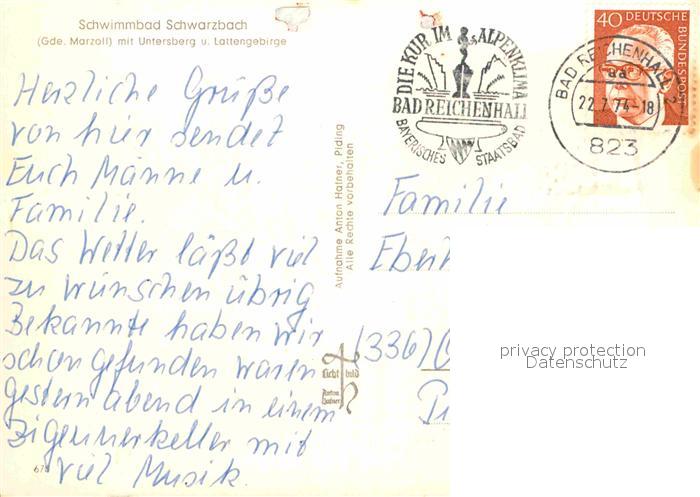 Schwimmbad Schwarzbach
(Gde. Marzoll) mit Untersberg u. Lattengebirge
Herzliche Grüße
von hier sendet
Euch Männe u.
Familie.
Das Wetter läßt viel
zu wünschen übrig
Bekannte haben wir
schon gefunden waren
gestern abend in einem
Zigeunerkeller mit
viel Musik.
67
Aufnahme Anton Hafner, Piding
Alle Rechte vorbehalten
Licht bild
Anton
Hafner
DIE KUR IM ALPENKLIMA
BAD REICHENHALL
BAYERISCHES STAATSBAD
BAD REICHENHALL 2
aa
22.7.74-18
823
40 DEUTSCHE
BUNDESPOST
Familie
Eber
(3367)
privacy protection
Datenschutz